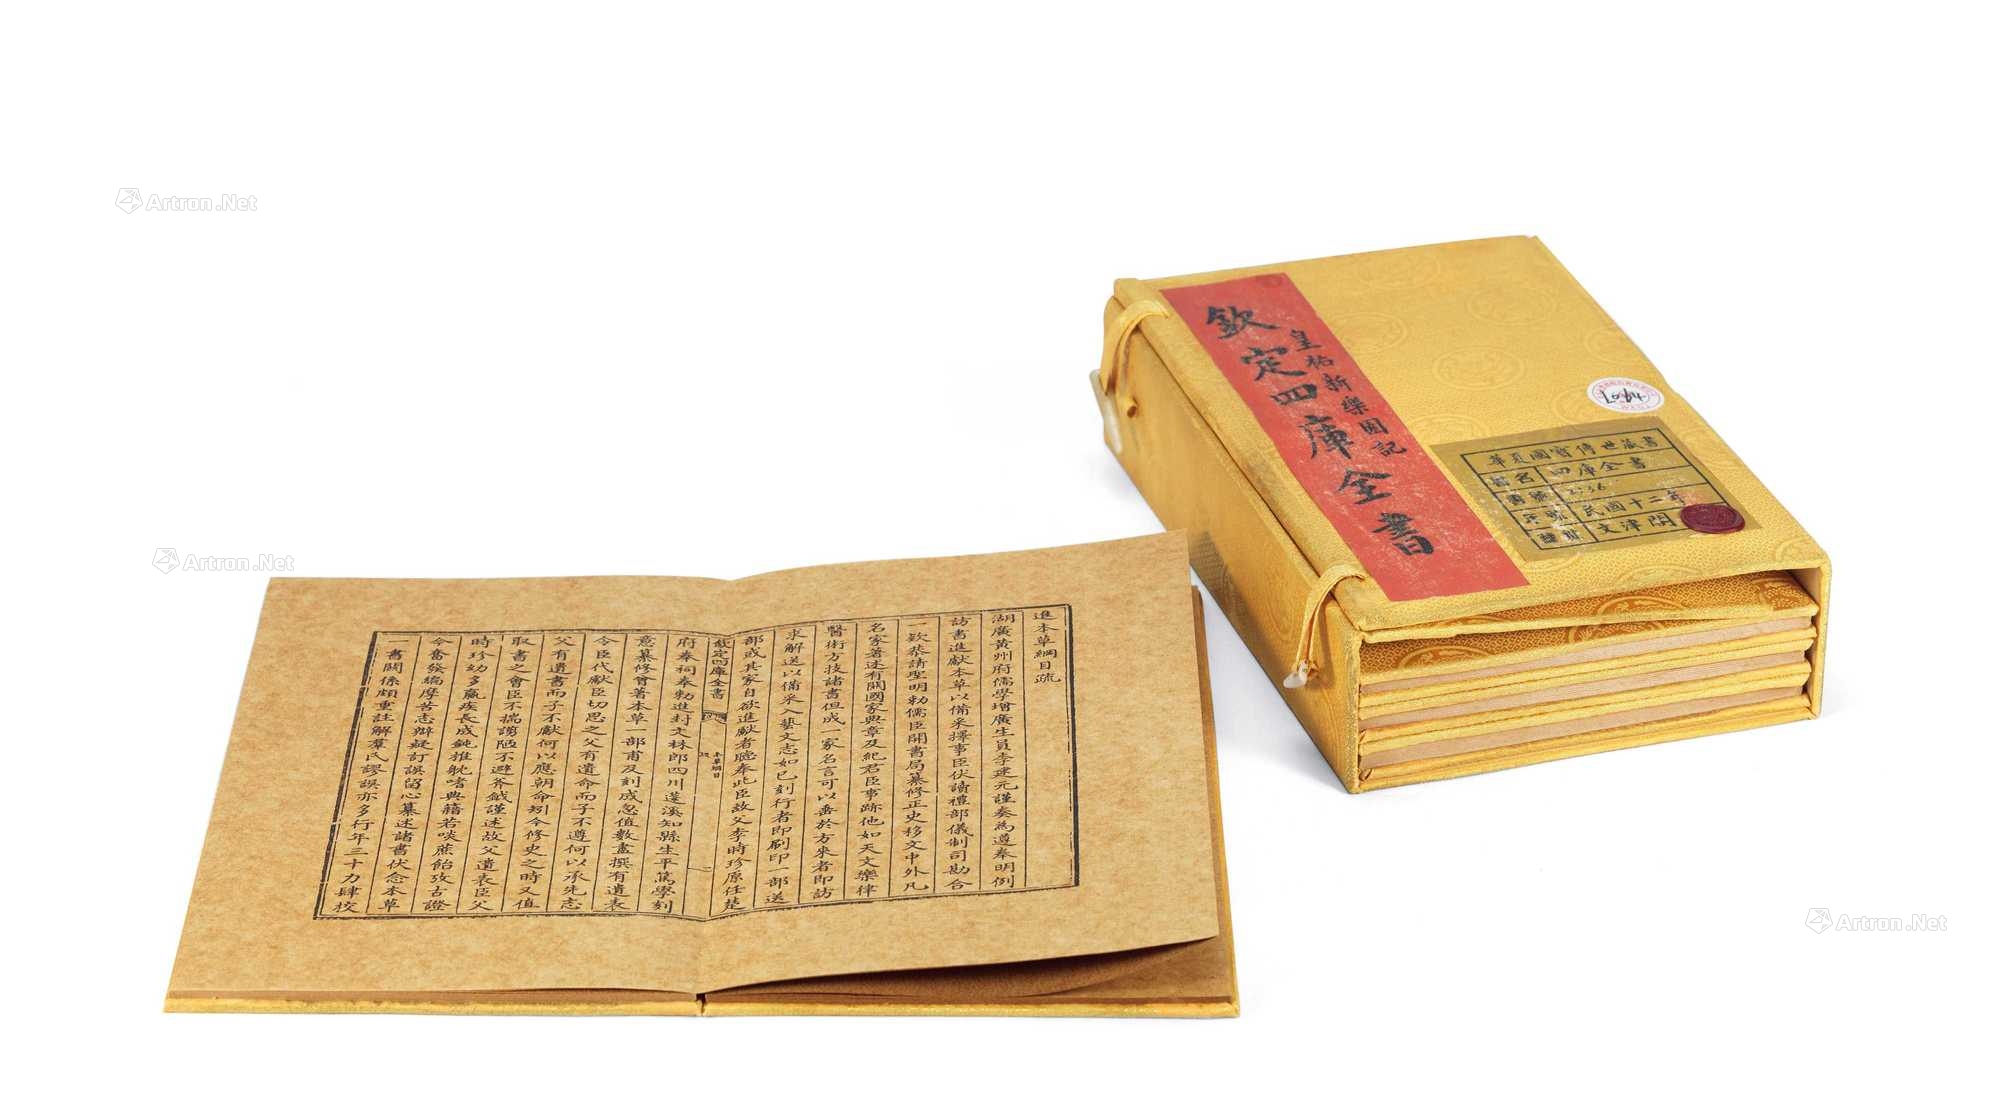 欽定四庫全書
皇祐新樂圖記
華夏國寶傳世藏書
書名 四庫全書
民國十二年
文津閣
進本草綱目疏
湖廣黃州府儒學增廣生員李建元謹奏為遵奉明例
訪書進獻本草以備采擇事臣伏讀禮部儀制司勘合
一欵恭請聖明勅儒臣開書局纂修正史移文中外凡
名家著述有關國家典章及紀君臣事跡他如天文樂律
醫術方技諸書但成一家名言可以垂於方來者即訪
求解送以備采入藝文志如已刻行者即刷印一部送
部或其家自欲進獻者聽奉此臣故父李時珍原任楚
欽定四庫全書
本草綱目
府奉祠奉勅進封文林郎四川蓬溪知縣生平篤學刻
意纂修曾著本草一部甫及刻成忽值數盡撰有遺表
令臣代獻臣切思之父有遺命而子不遵何以承先志
父有遺書而子不獻何以應朝命矧今修史之時又值
取書之會臣不揣謭陋不避斧鉞謹述故父遺表臣父
時珍幼多羸疾長成鈍推躭嗜典籍若啖蔗飴攷古證
今奮發編摩苦志辨疑訂誤留心纂述諸書伏念本草
一書關係頗重註解羣氏謬誤亦多行年三十力肆校
Artron.Net
Artron.Net
Artron.Net
Artron.Net